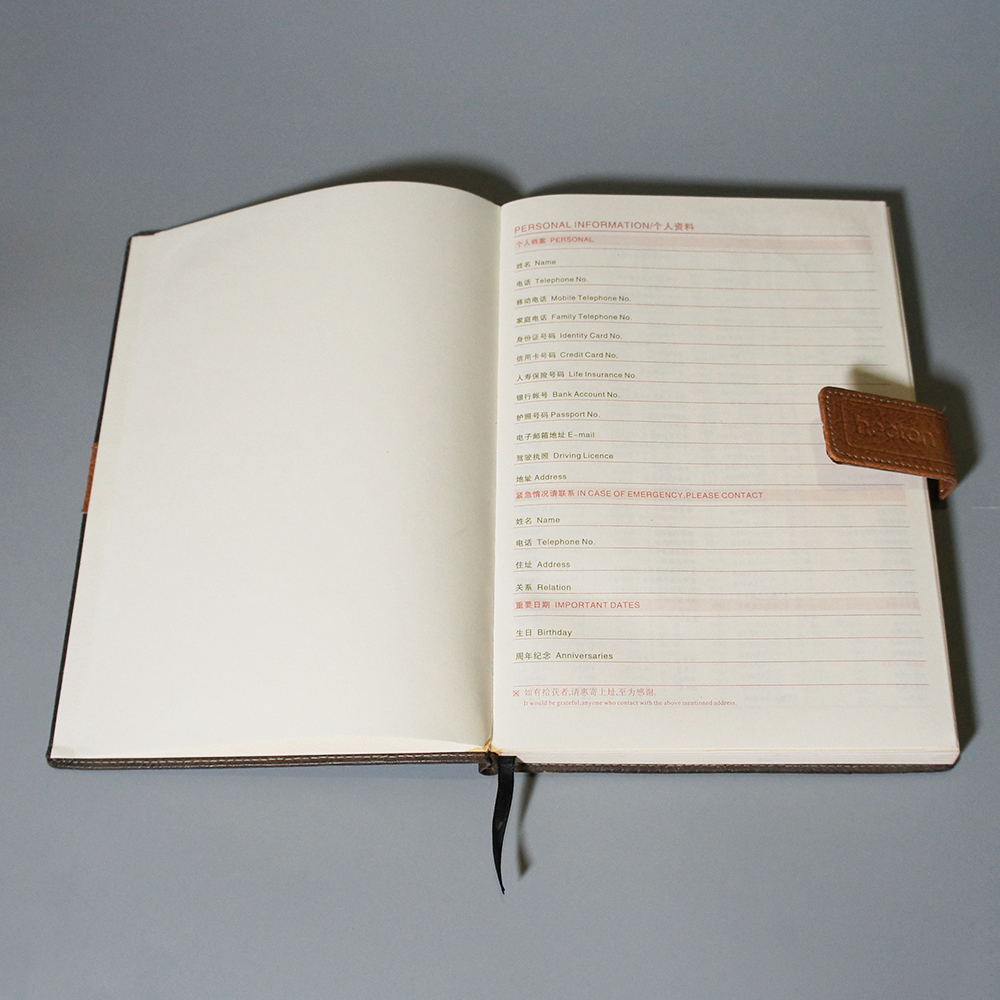 PERSONAL INFORMATION/个人资料
个人档案 PERSONAL
姓名 Name
电话 Telephone No.
移动电话 Mobile Telephone No.
家庭电话 Family Telephone No.
身份证号码 Identity Card No.
信用卡号码 Credit Card No.
人寿保险号码 Life Insurance No.
银行帐号 Bank Account No.
护照号码 Passport No.
电子邮箱地址 E-mail
驾驶执照 Driving Licence
地址 Address
紧急情况请联系 IN CASE OF EMERGENCY,PLEASE CONTACT
姓名 Name
电话 Telephone No.
住址 Address
关系 Relation
重要日期 IMPORTANT DATES
生日 Birthday
周年纪念 Anniversaries
※ 如有拾获者,请惠寄上址,至为感谢.
It would be grateful,anyone who contact with the above mentioned address.